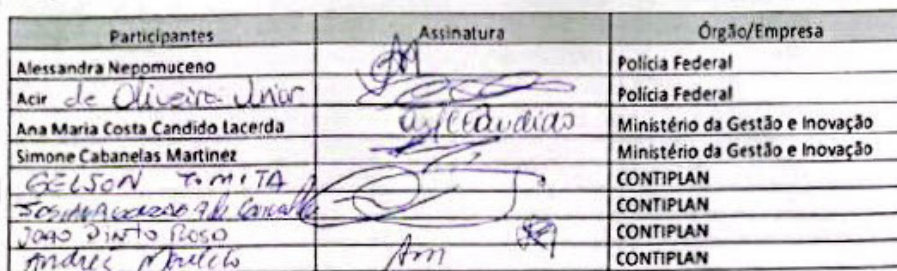 Participantes Assinatura Órgão/Empresa
Alessandra Nepomuceno Polícia Federal
Acir de Oliveira Junior Polícia Federal
Ana Maria Costa Candido Lacerda Ministério da Gestão e Inovação
Simone Cabanelas Martinez Ministério da Gestão e Inovação
GELSON TOMITA CONTIPLAN
CONTIPLAN
JOAO PINTO ROSO CONTIPLAN
Andrei CONTIPLAN